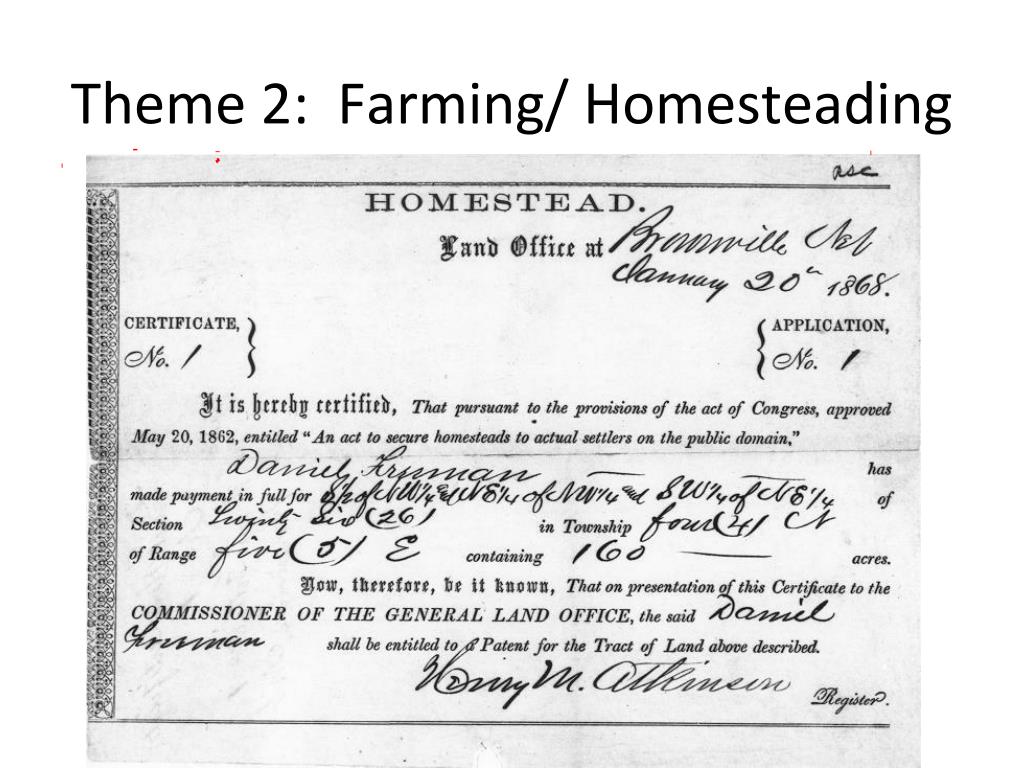 Theme 2: Farming/ Homesteading
asc
HOMESTEAD.
Land Office at Brownville Neb
January 20th 1868.
CERTIFICATE, APPLICATION,
No. 1 No. 1
It is hereby certified, That pursuant to the provisions of the act of Congress, approved
May 20, 1862, entitled “An act to secure homesteads to actual settlers on the public domain,”
Daniel Freeman has
made payment in full for S½ of NW¼ and NE¼ of NW¼ and SW¼ of NE¼ of
Section Twenty Six (26) in Township four (4) N
of Range five (5) E containing 160 acres.
Now, therefore, be it known, That on presentation of this Certificate to the
COMMISSIONER OF THE GENERAL LAND OFFICE, the said Daniel
Freeman shall be entitled to a Patent for the Tract of Land above described.
Henry M. Atkinson
Register.